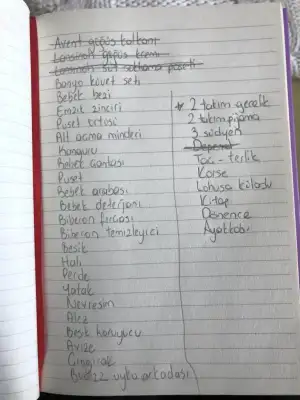 Avent göğüs kalkanı
Lansinoh göğüs kremi
Lansinoh süt saklama poşeti
Banyo küvet seti
Bebek bezi
Emzik zinciri
Puset örtüsü
Alt açma minderi
Kanguru
Bebek çantası
Puset
Bebek arabası
Bebek deterjanı
Biberon fırçası
Biberon temizleyici
Beşik
Halı
Perde
Yatak
Nevresim
Alez
Beşik koruyucu
Avize
Çıngırak
Buzzz uyku arkadaşı
* 2 takım gecelik
2 takım pijama
3 sütyen
Depend
Taç - terlik
Korse
Lohusa külodu
Kitap
Dönence
Ayakkabı